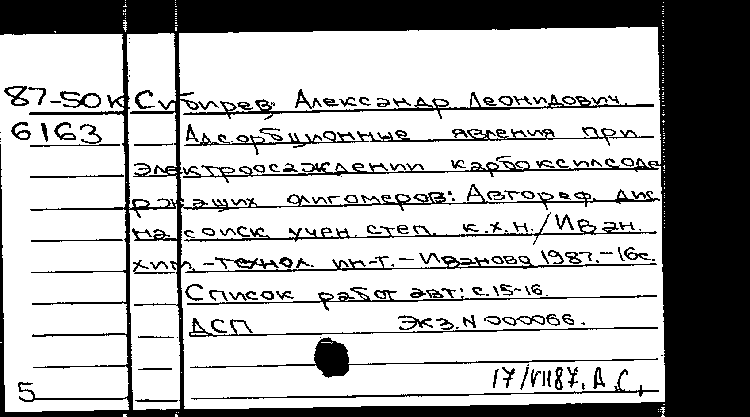 87-50к Сибирев Александр Леонидович.
6163 Адсорбционные явления при
электроосаждении карбоксилсоде
ржащих олигомеров: Автореф. дис
на соиск. учен. степ. к.х.н./Иван.
хим.-технол. ин-т.-Иваново 1987.-16с.
Список работ авт: с.15-16.
ДСП Экз. N 000066.
17/VII87. А.С.
5